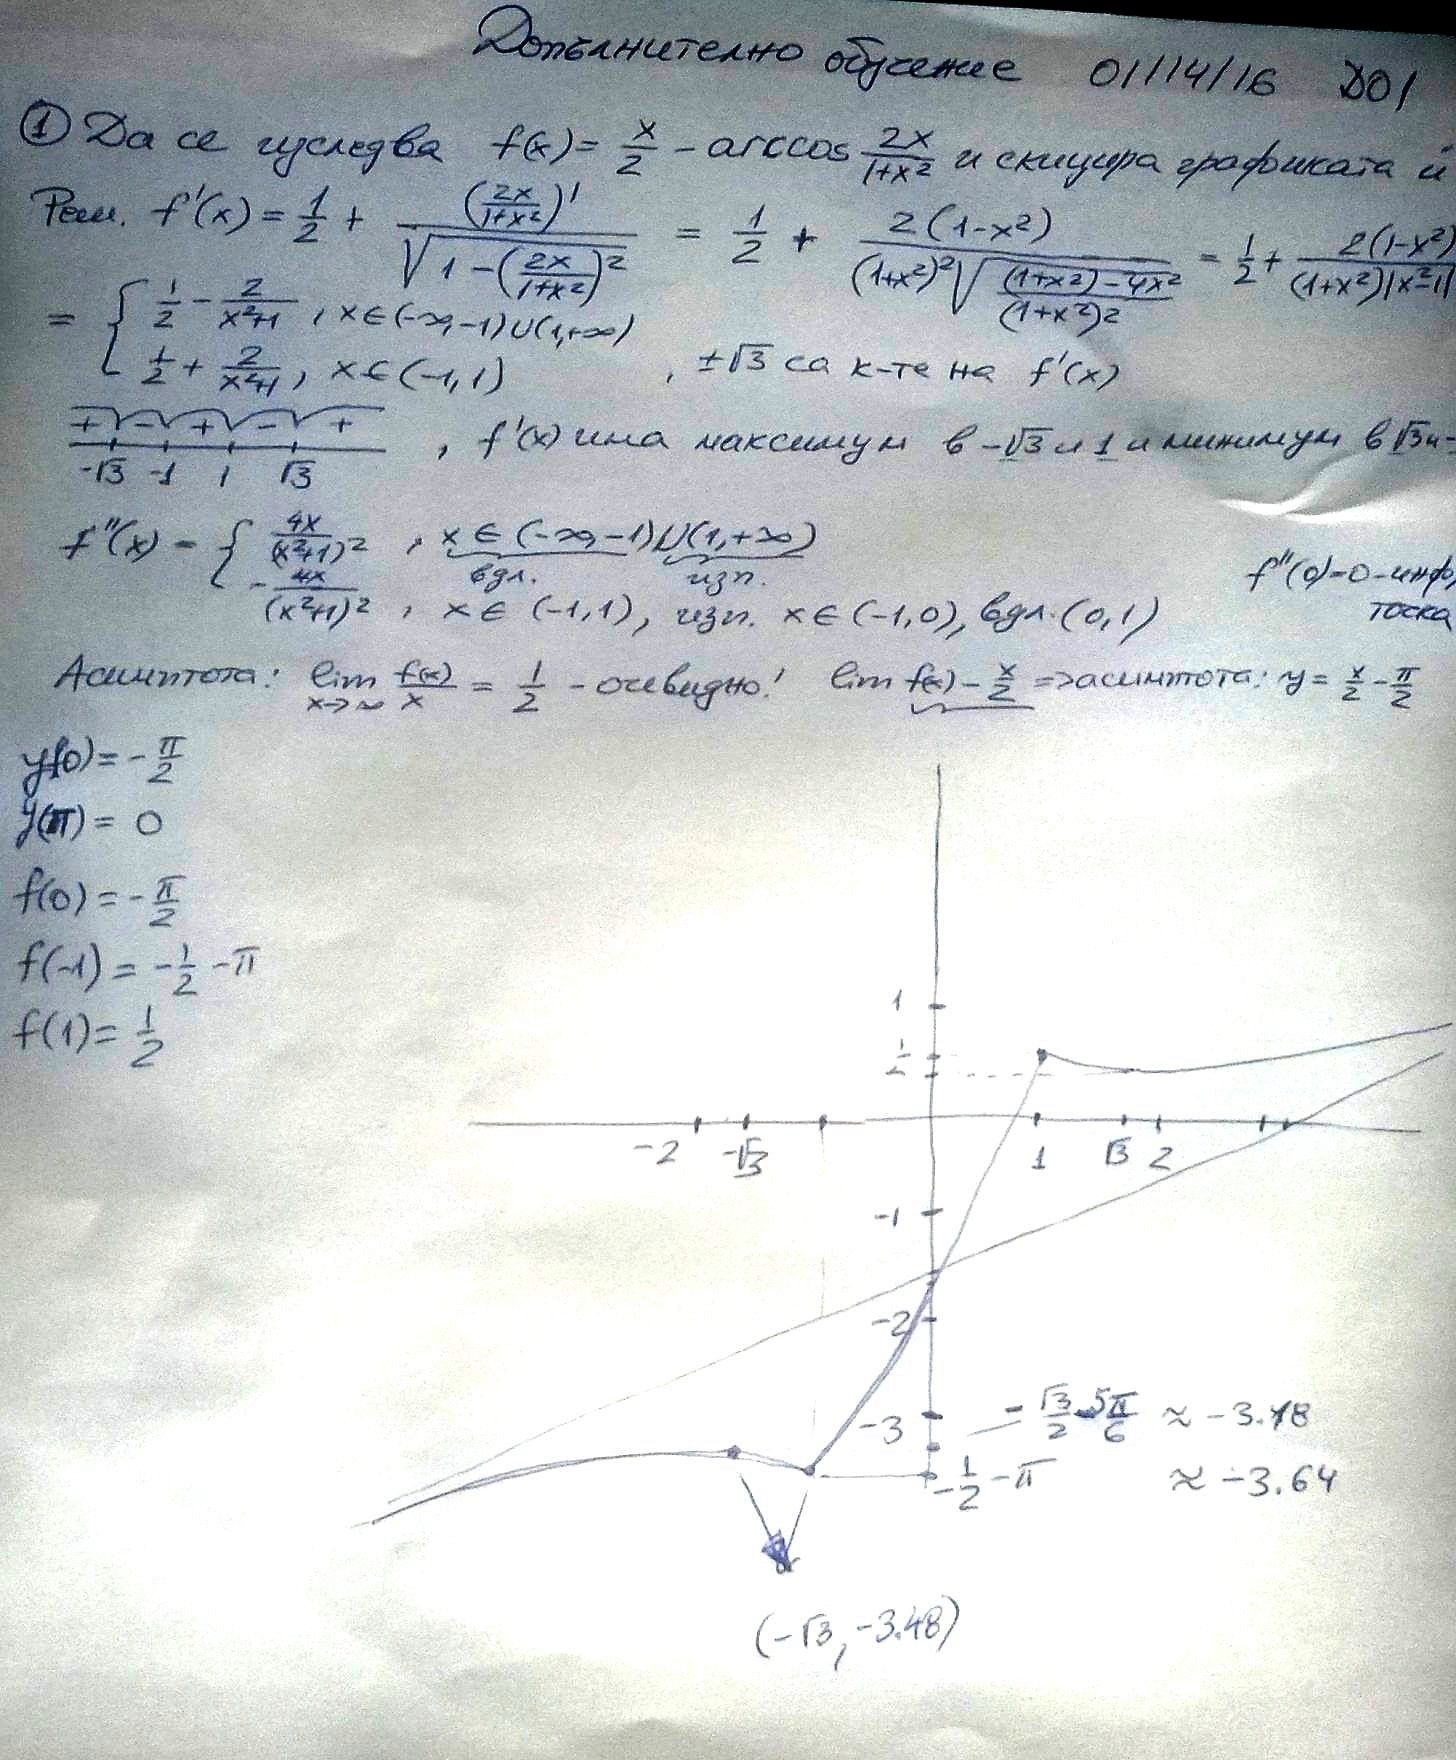 Допълнително обучение 01/14/16 DO1
① Да се изследва f(x) = x/2 - arccos 2x/(1+x²) и скицира графиката ѝ
Реш. f'(x) = 1/2 + (2x/(1+x²))' / √(1-(2x/(1+x²))²) = 1/2 + 2(1-x²) / ((1+x²)²√(((1+x²)-4x²)/(1+x²)²)) = 1/2 + 2(1-x²)/((1+x²)|x²-1|
= { 1/2 - 2/(x²+1), x∈(-∞,-1)∪(1,+∞)
1/2 + 2/(x²+1), x∈(-1,1) , ±√3 са к-те на f'(x)
+ - + - +
-√3 -1 1 √3 , f'(x) има максимум в -√3 и 1 и минимум в √3 и -
f''(x) = { 4x/(x²+1)² , x∈(-∞,-1)∪(1,+∞)
вдл. изп.
-4x/(x²+1)² , x∈(-1,1), изп. x∈(-1,0), вдл. (0,1)
f''(0)=0 - инф.
точка
Асимптота: lim x→∞ f(x)/x = 1/2 - очевидно! lim f(x) - x/2 => асимптота: y = x/2 - π/2
y(0) = -π/2
y(π) = 0
f(0) = -π/2
f(-1) = -1/2 - π
f(1) = 1/2
1
1/2
-2 -√3 1 √3 2
-1
-2
-3 - √3/2 - 5π/6 ≈ -3.48
-1/2 - π ≈ -3.64
(-√3, -3.48)